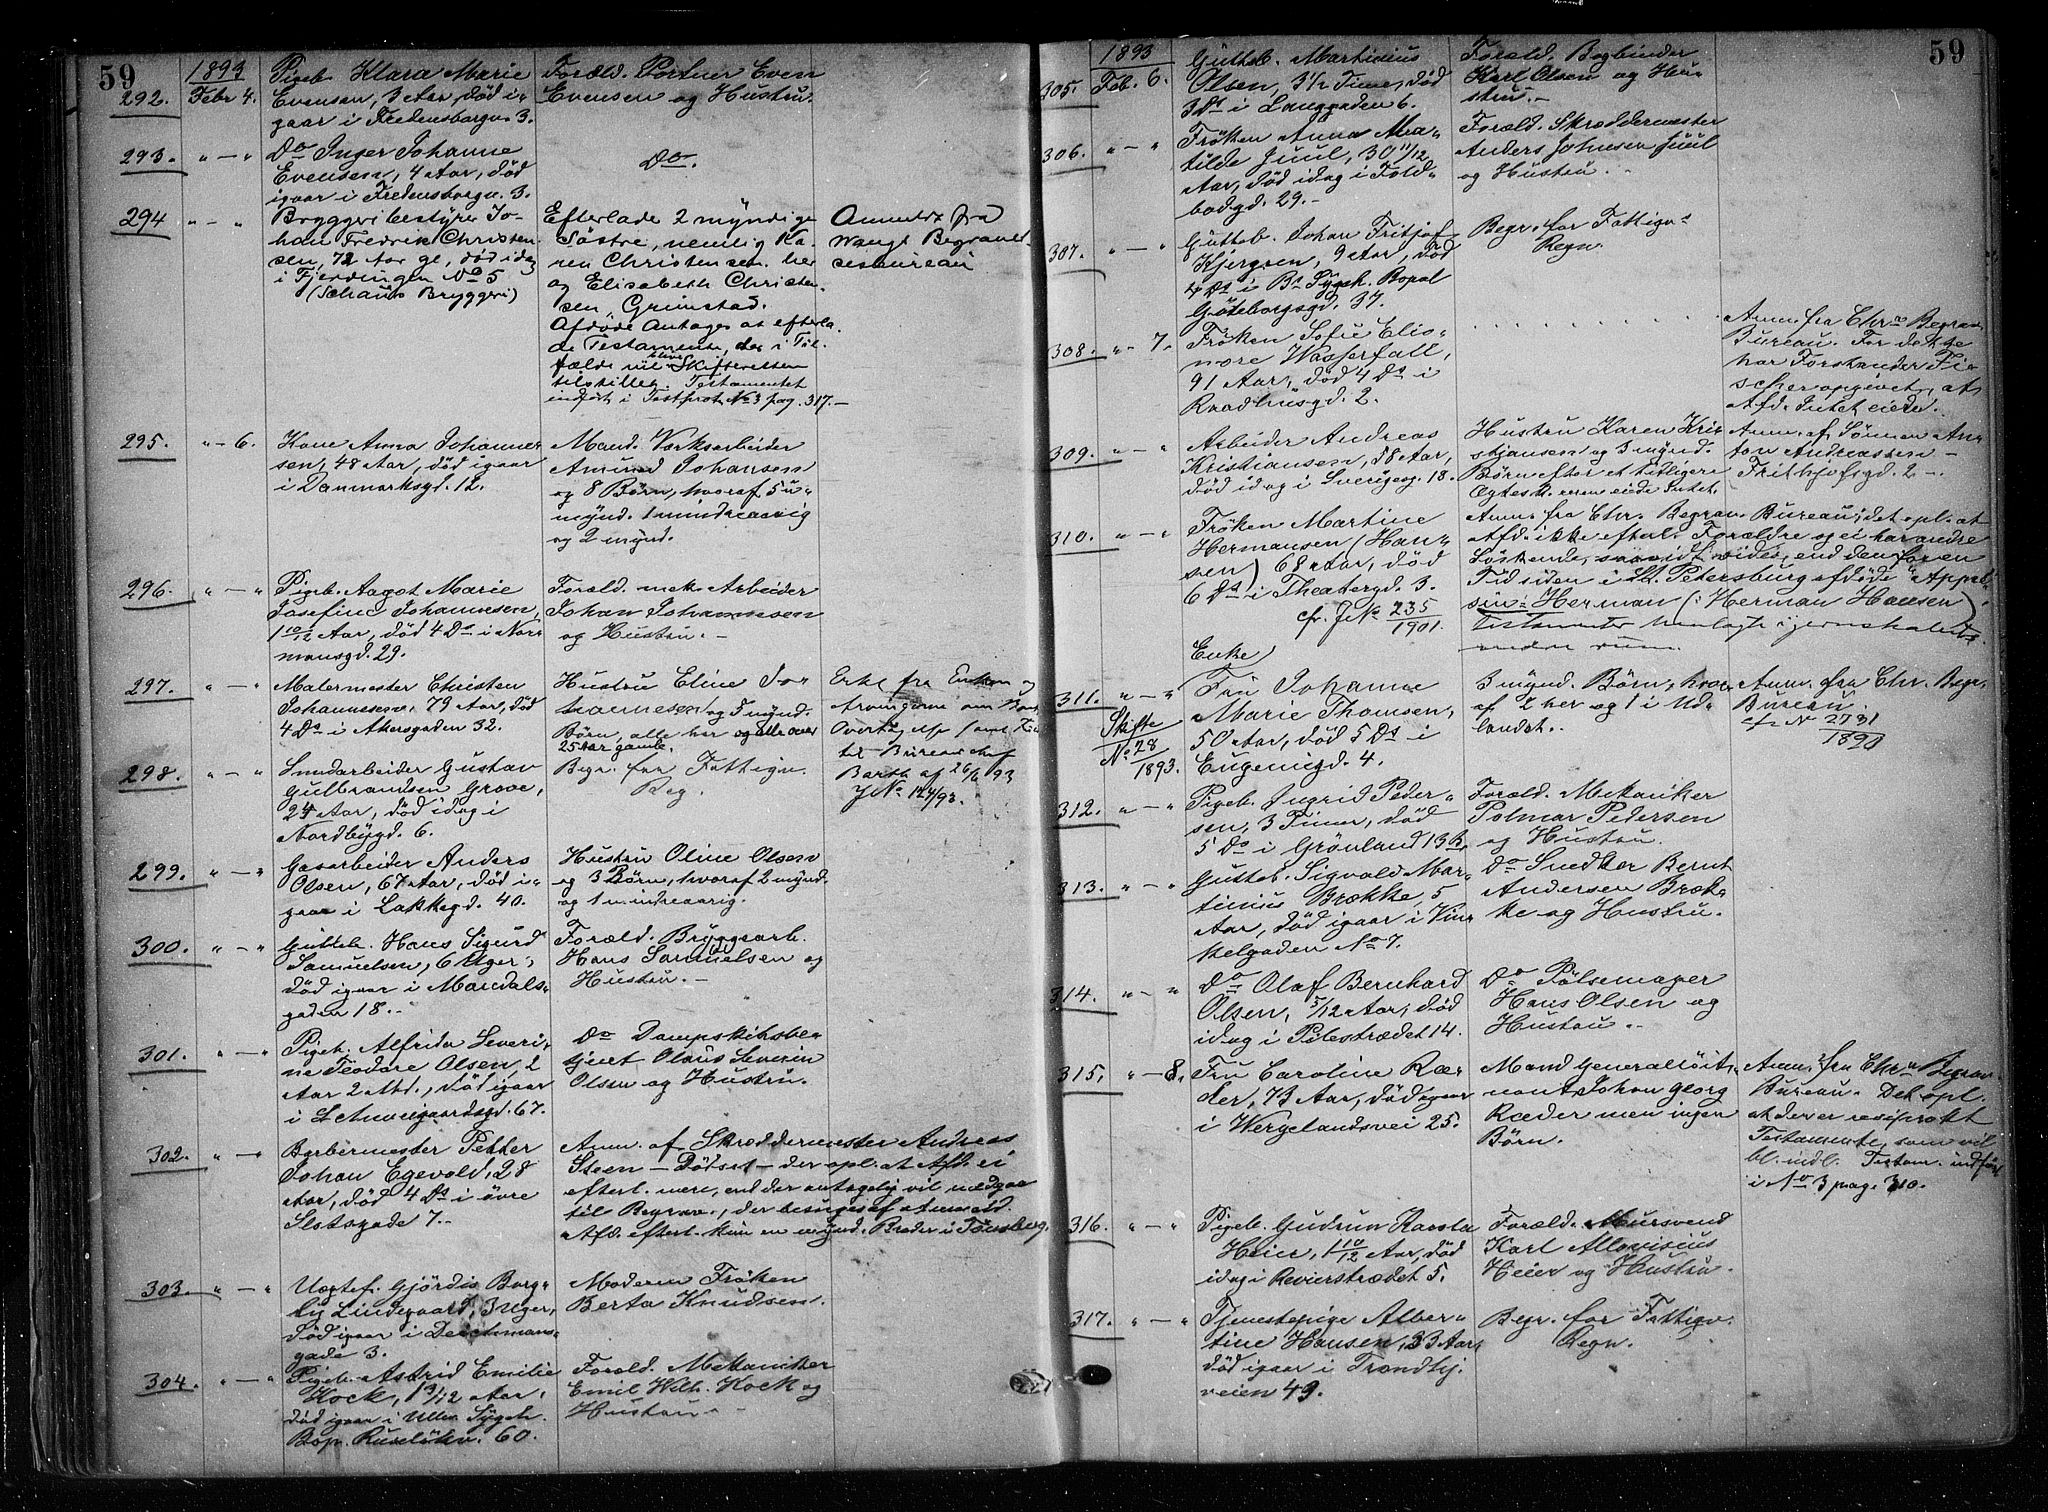 59
1893
292. Febr 4. Pigeb. Klara Marie
Evensen, 3 Aar, død i-
gaar i Fredensborgv. 3.
Foræld. Portner Even
Evensen og Hustru.
293. " — " Do Inger Johanne
Evensen, 4 Aar, død
igaar i Fredensborgv. 3.
Do.
294 " — " Bryggeribestyrer Jo-
han Fredrik Christen-
sen, 72 Aar gl, død idag
i Fjerdingen No 5
(Schaus Bryggeri)
Efterlade 2 myndige
Søstre, nemlig Ka-
ren Christensen her
og Elisabeth Christen-
sen, Grimstad.
Afdøde antages at efterla-
de Testamente, der i Til-
fælde vil blive Skifteretten
tilstillet. Testamentet
indført i Testprot. No 3 pag. 317.—
Anmeldt fra
Wangs Begravel-
sesbureau
295. " — 6. Kone Anna Johannes-
sen, 48 Aar, død igaar
i Danmarksgd. 12.
Mand. Værksarbeider
Amund Johansen
og 8 Børn, hvoraf 5 u-
mynd. 1 mindreaarig
og 2 mynd.
296. " — " Pigeb. Aagot Marie
Josefine Johannesen,
1 10/12 Aar, død 4 Ds i Nor-
mansgd. 29.
Foræld. mek. Arbeider
Johan Johannesen
og Hustru.—
297. " — " Malermester Christen
Johannesen, 79 Aar, død
4 Ds i Akersgaden 32.
Hustru Eline Jo-
hannesen og 5 mynd.
Børn, alle her og alle over
25 Aar gamle.
Erkl. fra Enken og
Arvingerne om
Overtagelse samt
til Bureauchef
Barth af 26/6 93
J No 124/93.
298. " — " Smedarbeider Gustav
Gulbrandsen Grove,
24 Aar, død idag i
Nordbygd. 6.
Begr. for Fattigv.
Reg.
299. " — " Gasarbeider Anders
Olsen, 67 Aar, død i-
gaar i Lakkegd. 40.
Hustru Oline Olsen
og 3 Børn, hvoraf 2 mynd.
og 1 mindreaarig.
300. " — " Gutteb. Hans Sigurd
Samuelsen, 6 Uger,
død igaar i Mandals-
gaden 18.
Foræld. Bryggsarb.
Hans Samuelsen og
Hustru.—
301. " — " Pigeb. Alfrida Severi-
ne Teodore Olsen, 2
Aar 2 Md., død igaar
i Schweigaardsgd. 67.
Do Dampskibsbe-
tjent Olaus Severin
Olsen og Hustru.
302. " — " Barbermester Petter
Johan Egevold, 28
Aar, død 4 Ds i øvre
Slotsgade 7.
Anm. af Skræddermester Andreas
Steen — Dødset — der opl. at Afd. ei
efterl. mere, end der antagelig vil medgaa
til Begrav., der besørges af Anmeld.
Afd. efterl. kun en mynd. Broder i Tønsberg.
303. " — " Uægtef. Gjørdis Borg-
ly Lindegaard, 3 Uger,
død igaar i Deichmans-
gade 3.
Moderen Frøken
Berta Knudsen.
304. " — " Pigeb. Astrid Emilie
Kock, 1 9/12 Aar,
død igaar i Ullev. Sygeh.
Bop. Ruseløkv. 60.
Foræld. Mekaniker
Emil Wilh. Kock og
Hustru.
59
1893
305. Feb. 6. Gutteb. Martinius
Olsen, 3 1/2 Time, død
3 Ds i Langgaden 6.
Foræld. Bogbinder
Karl Olsen og Hu-
stru.—
306. " — " Frøken Anna Ma-
tilde Juul, 30 11/12
Aar, død idag i Told-
bodgd. 29.—
Foræld. Skræddermester
Anders Johnsen Juul
og Hustru.
307. " — " Gutteb. Johan Fritjof
Kjergsen, 9 Aar, død
4 Ds i Bs Sygeh. Bopal
Gøteborgsgd. 37.
Begr. for Fattigv.s
Regn.
308. " — 7. Frøken Sofie Elio-
nore Wasserfall,
91 Aar, død 4 Ds i
Raadhusgd. 2.
Anm. fra Chr.s Begrav.
Bureau. For dette
har Forstander Fi-
scher opgivet, at
Afd. Intet eiede.
309. " — " Arbeider Andreas
Kristiansen, 58 Aar,
død idag i Sverigesg. 18.
Hustru Karen Kri-
stiansen og 3 mynd.
Børn efter et tidligere
Ægtesk. eiede Intet.
Anm. af Sønnen An-
ton Andreassen —
Frithjofsgd. 2 —.
310. " — " Frøken Martine
Hermansen (Han-
sen) 68 Aar, død
6 Ds i Theatergd. 3.
cfr. J No 235/1901.
Anm. fra Chr. Begrav. Bureau; det opl. at
Afd. ikke efterl. Forældre og ei har andre
Søskende, saavidt vides, end den for en
Tid siden i St. Petersburg afdøde "Appel-
sin-Herman (: Herman Hansen)
Testamenter henlagt i jernskabets
nedre rum.
311. " — " Enke
Fru Johanne
Marie Thomsen,
50 Aar, død 5 Ds i
Eugeniegd. 4.
Skifte
No 28
1893.
3 mynd. Børn, hvor-
af 2 her og 1 i Ud-
landet.
Anm. fra Chr. Begr.
Bureau.
cf. N 2731
1890
312. " — " Pigeb. Ingrid Peder-
sen, 3 Timer, død
5 Ds i Grønland 13 b.
Foræld. Mekaniker
Polmar Pedersen
og Hustru.
313. " — " Gutteb. Sigvald Mar-
tinius Brække, 5
Aar, død igaar i Vin-
kelgaden No 7.
Do Snedker Bernt
Andersen Bræk-
ke og Hustru.
314. " — " Do Olaf Bernhard
Olsen, 5/12 Aar, død
idag i Pilestrædet 14.
Do Pølsemager
Hans Olsen og
Hustru.
315. " — 8. Fru Caroline Ræ-
der, 73 Aar, død igaar
i Wergelandsvei 25.
Mand Generalløit-
nant Johan Georg
Ræder men ingen
Børn.
Anm. fra Chr.s Begrav.
Bureau. Det opl.
at der er resiprokt
Testamente, som vil
bl. indl. Testam. indført
i No 3 pag. 310.
316. " — " Pigeb. Gudrun
Heier, 1 10/12 Aar, død
idag i Revierstrædet 5.
Foræld. Mursvend
Karl Alloysius
Heier og Hustru.
317. " — " Tjenestepige Alber-
tine Hansen, 33 Aar,
død igaar i Trondhj.
veien 49.
Begr. for Fattigv.
Regn.